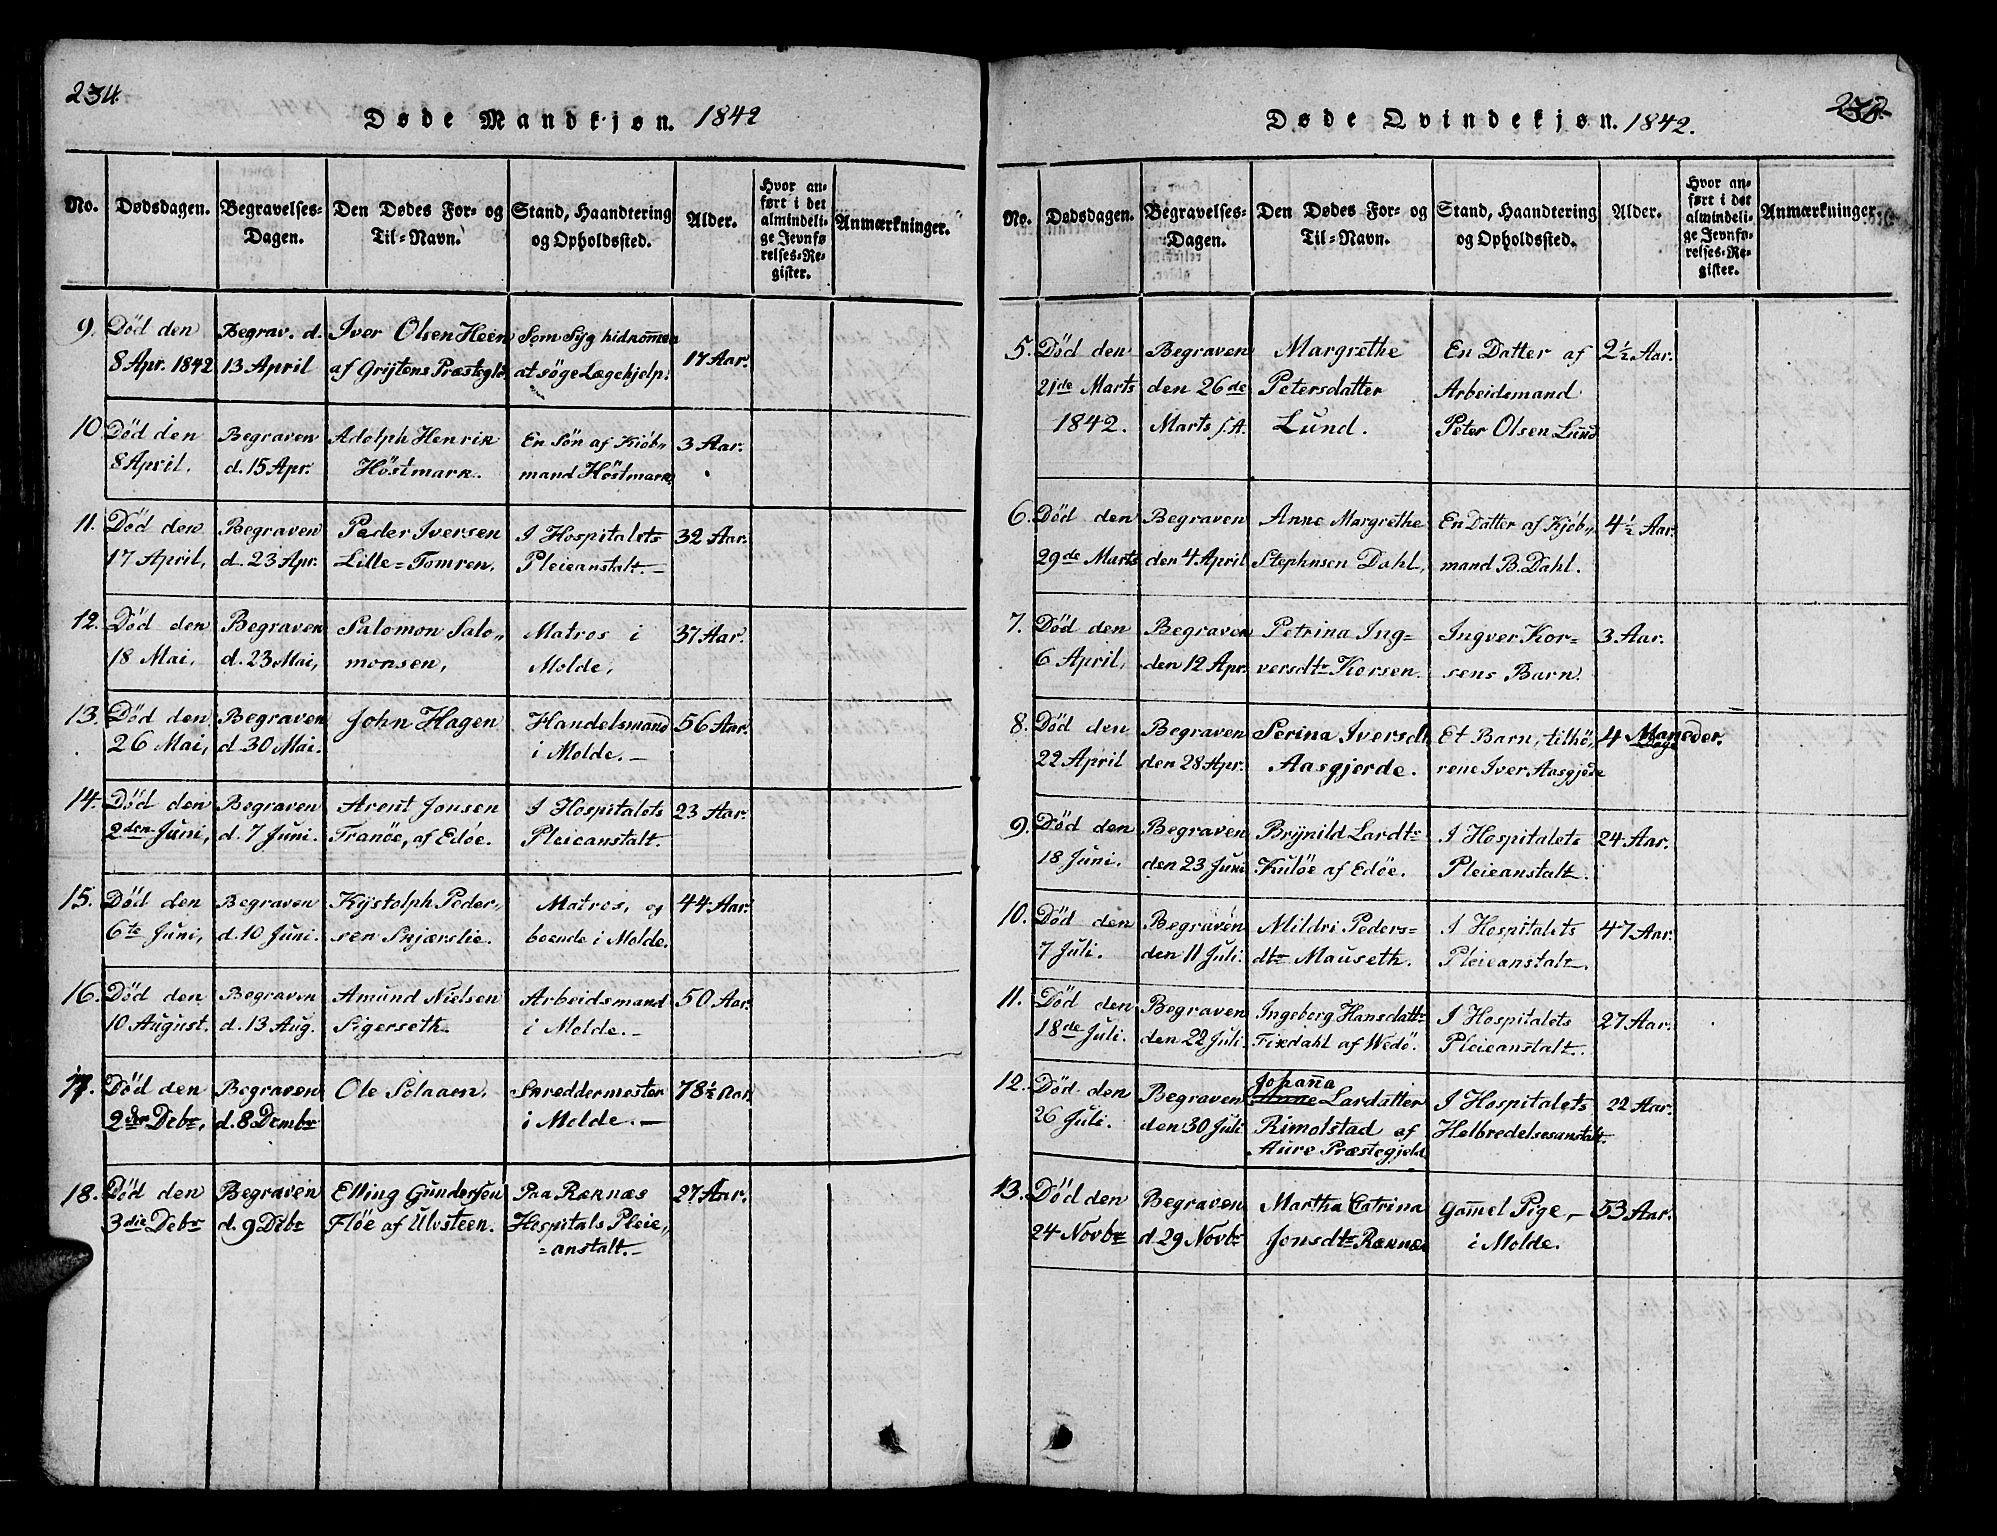 234.
Døde Mandkjøn. 1842
No.
Dødsdagen.
Begravelses-
Dagen.
Den Dødes For- og
Til-Navn.
Stand, Haandtering
og Opholdssted.
Alder.
Hvor an-
ført i det
almindeli-
ge Jevnfø
relses-Re-
gister.
Anmærkninger.
9. Død den
8 Apr. 1842
Begrav. d.
13 April
Iver Olsen Heen
af Grÿtens Præstegld.
Som Sÿg hidkom̄en
at söge Lægehjelp.
17 Aar.
10 Død den
8 April.
Begraven
d. 15 Apr.
Adolph Henrik
Höstmark.
En Sön af Kiöb„
mand Höstmark
3 Aar.
11. Död den
17 April,
Begraven
d. 23 Apr.
Peder Iversen
Lille=Tomren.
I Hospitalets
Pleieanstalt.—
32 Aar.
12. Död den
18 Mai,
Begraven
d. 23 Mai,
Salomon Salo„
monsen,
Matros i
Molde,
37 Aar.
13. Död den
26 Mai,
Begraven
d. 30 Mai.
John Hagen
Handelsmand
i Molde.—
56 Aar.
14. Död den
2den Juni,
Begraven
d. 7 Juni.
Arent Jonsen
Tranöe, af Edöe.
I Hospitalets
Pleieanstalt.
23 Aar.
15. Död den
6te Juni,
Begraven
d. 10 Juni.
Kÿstolph Peder„
sen Skjærslie.
Matros, og
boende i Molde.
44 Aar.
16. Död den
10 August.
Begraven
d. 13 Aug.
Amund Nielsen
Sigerseth.
Arbeidsmand
i Molde.—
50 Aar.
17. Död den
2den Debr,
Begraven
d. 8 Dcmbr
Ole Solaam.
Skreddermester
i Molde.—
78½ Aar.
18. Död den
3die Debr
Begraven
d. 9 Debr
Elling Gundersen
Flöe af Ulvsteen.
Paa Reknæs
Hospitals Pleie„
=anstalt.—
27 Aar.
Døde Qvindekjøn. 1842.
No.
Dødsdagen.
Begravelses-
Dagen.
Den Dødes For- og
Til-Navn.
Stand, Haandtering
og Opholdssted.
Alder.
Hvor an-
ført i det
almindeli-
ge Jevnfø-
relses-Re-
gister.
Anmærkninger.
5. Död den
21de Marts
1842.
Begraven
den 26de
Marts s. A.
Margrethe
Petersdatter
Lund.
En Datter af
Arbeidsmand
Peter Olsen Lund
2½ Aar.
6. Död den
29de Marts
Begraven
den 4 April
Anne Margrethe
Stephnsen Dahl,
En Datter af Kjöb„
mand B. Dahl.
4½ Aar.
7. Död den
6 April,
Begraven
den 12 Apr.
Petrina Ing=
versdtr Korsen.
Ingver Kor=
sens Barn.
3 Aar.
8. Död den
22 April
Begraven
den 28 Apr.
Serina Iversdt
Aasgjerde.
Et Barn, tilhö„
rene Iver Aasgjerde
4 Maneder.
Dage
9. Död den
18 Juni.
Begraven
den 23 Juni
Brÿnild Lardtr
Kulöe af Edöe.
I Hospitalets
Pleieanstalt.
24 Aar.
10. Död den
7 Juli.
Begraven
den 11 Juli.
Mildri Peders=
dtr Mauseth.
I Hospitalets
Pleieanstalt.
47 Aar.
11. Död den
18de Juli.
Begraven
den 22 Juli.
Ingeborg Hansdattr
Fixdahl af Wedö.
I Hospitalets
Pleieanstalt.
27 Aar.
12. Död den
26 Juli.
Begraven
den 30 Juli
Johan̄a
Anne Lardatter
Rimolstad af
Aure Præstegjeld
I Hospitalets
Helbredelsesanstalt.
22 Aar.
13. Död den
24 Novbr
Begraven
d. 29 Novbr
Martha Catrina
Jonsdtr Reknæs
Gam̄el Pige,—
i Molde.
53 Aar.